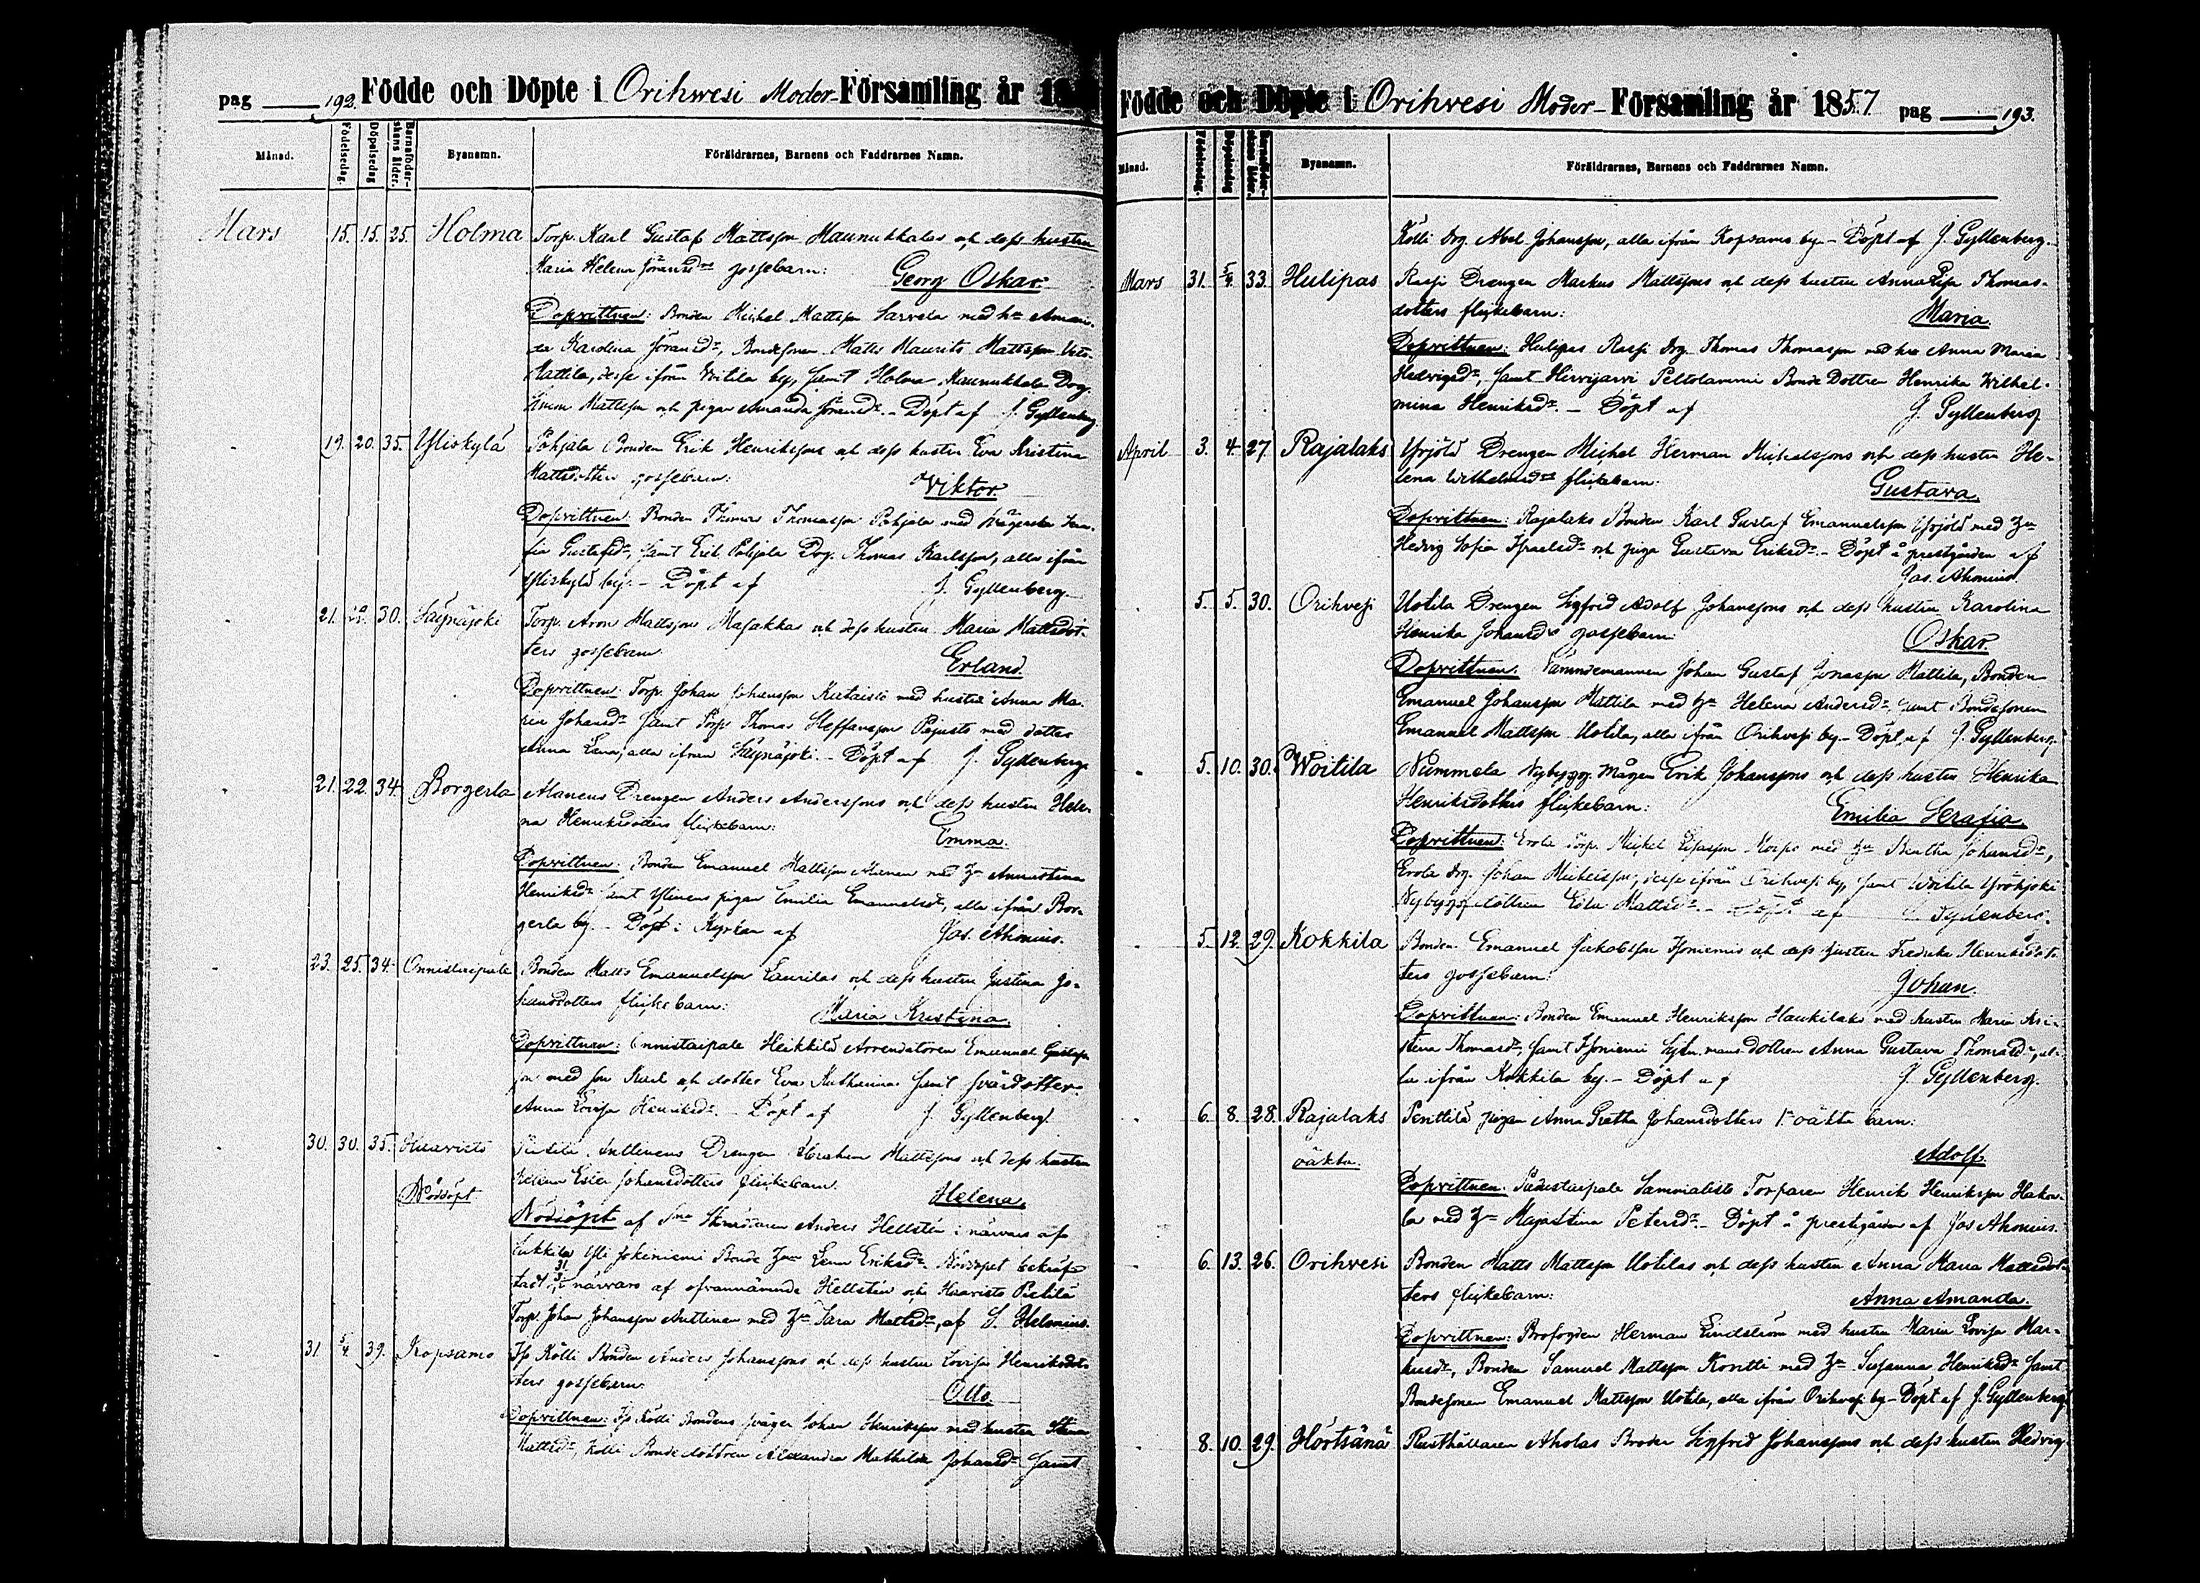 pag 192. Födde och Döpte i Orihwesi Moder-Församling år 18
Månad. Födelsedag. Döpelsedag Barnaföderskans ålder. Bysnamn. Föräldrarnes, Barnens och Faddrarnes Namn.
Mars 15. 15. 25. Holma Torp. Karl Gustaf Mattsson Maunukkalas och dess hustru
Maria Helena Göransdrs gossebarn: Georg Oskar.
Dopvittnen: Bonden Michel Mattsson Sarvela med hu Aman-
da Karolina Göransdr, Bondesonen Matts Maurits Mattsson
Mattila, desse ifrån Woitila by, samt Holma Maunukkala Drg.
Mattsson och pigan Amanda Göransdr. - Döpt af J. Gyllenberg
19. 20. 35. Yliskylä Pohjala Bonden Erik Henrikssons och dess hustru Eva Kristina
Mattsdotters gossebarn: Viktor.
Dopvittnen: Bonden Thomas Thomasson Pohjala med
fia Gustafsdr, samt Erik Pohjala Drg. Thomas Karlsson, alla ifrån
Yliskylä by. - Döpt af J. Gyllenberg.
21. 22. 30. Säynäjoki Torp. Aron Mattssons Masakkas och dess hustru Maria Mattsdot-
ters gossebarn. Erland.
Dopvittnen: Torp. Johan Johansson Kataisto med hustru Anna Ma-
ria Johansdr samt Torp. Thomas Steffansson Pajusto med dotter
Anna Lena, alla ifrån Säynäjoki. - Döpt af J. Gyllenberg
21. 22. 34. Borgerla Alanens Drengen Anders Anderssons och dess hustru Hele-
na Henriksdotters flickebarn: Emma.
Dopvittnen: Bonden Emanuel Mattsson Alanen med hu Annastina
Henriksdr samt Ylinens pigan Emilia Emanuelsdr, alla ifrån Bor-
gerla by. - Döpt i Kyrkan af Jos. Ahonius.
23. 25. 34. Onnistaipale Bonden Matts Emanuelsson Laurilas och dess hustru Justina Jo-
hansdotters flickebarn: Maria Kristina.
Dopvittnen: Onnistaipale Heikkilä Arrendatoren Emanuel Gustafs-
son med son Karl och dotter Eva Katharina samt svärdotter
Anna Lovisa Henriksdr. - Döpt af J. Gyllenberg.
30. 30. 35. Haavisto Pietilä Anttinens Drengen Abraham Mattssons och dess hustru
Helena Ester Johansdotters flickebarn. Helena.
Nöddöpt Nöddöpt af Sme Skräddaren Anders Hellstén i närvaro af
Sukkila Yli Jokeniemi Bonde hu Lena Eriksdr. Nöddopet bekräf-
tadt 31/3 i närvaro af ofvannämnde Hellstén och Haavisto Pietilä
Torp. Johan Johansson Anttinen med hu Sara Mattsdr, af S. Helenius.
31 5/4 39. Kopsamo Iso Kölli Bonden Anders Johanssons och dess hustru Lovisa Henriksdot-
ters gossebarn. Otto.
Dopvittnen: Iso Kölli Bondens svåger Johan Henriksson med hustru Stina
Mattsdr, Kölli Bonde dottren Alexandra Mathilda Johansdr samt
Födde och Döpte i Orihvesi Moder-Församling år 1857 pag 193.
Månad. Födelsedag. Döpelsedag Barnaföderskans ålder. Bysnamn. Föräldrarnes, Barnens och Faddrarnes Namn.
Kölli Drg. Abel Johansson, alla ifrån Kopsamo by. - Döpt af J. Gyllenberg.
Mars 31. 5/4. 33. Hulipas Rasi Drengen Markus Mattssons och dess hustru Anna Lisa Thomas-
dotters flickebarn: Maria.
Dopvittnen: Hulipas Rasi Drg. Thomas Thomasson med hu Anna Maria
Hedvigsdr, samt Hirvijärvi Peltolammi Bonde Dottren Henrika Wilhel-
mina Henriksdr. - Döpt af J. Gyllenberg
April 3. 4. 27. Rajalaks Yrjölä Drengen Michel Herman Michelssons och dess hustru He-
lena Wilhelmsdrs flickebarn: Gustava.
Dopvittnen: Rajalaks Bonden Karl Gustaf Emanuelsson Yrjölä med hu
Hedvig Sofia Israelsdr och piga Gustava Eriksdr. - Döpt å prestgården af
Jos. Ahonius.
5. 5. 30. Orihvesi Uotila Drengen Sigfrid Adolf Johanssons och dess hustru Karolina
Henrika Johansdrs gossebarn: Oskar.
Dopvittnen: Nämndemannen Johan Gustaf Jonasson Mattila, Bonden
Emanuel Johansson Mattila med hu Helena Andersdr, samt Bondesonen
Emanuel Mattsson Uotila, alla ifrån Orihvesi by. - Döpt af J. Gyllenberg.
5. 10. 30. Woitila Nummela Nybygg. Mågen Erik Johanssons och dess hustru Henrika
Henriksdotters flickebarn: Emilia Serafia.
Dopvittnen: Erola Torp. Michel Esasson Korpi med hu Beatha Johansdr,
Erola Drg. Johan Michelsson, desse ifrån Orihvesi by, samt Woitila
Nybygg. dottren Edla Mattsdr. - Döpt af J. Gyllenberg.
5. 12. 29. Kokkila Bonden Emanuel Jakobsson Isoniemis och dess hustru Fredrika Henriksdot-
ters gossebarn: Johan.
Dopvittnen: Bonden Emanuel Henriksson Haukilaks med hustru Maria Kri-
stina Thomasdr, samt Isoniemi Sytn.mans dottren Anna Gustava Thomasdr, al-
la ifrån Kokkila by. - Döpt af J. Gyllenberg.
6. 8. 28. Rajalaks Penttilä pigan Anna Greta Johansdotters 1a oäkta barn:
oäkta. Adolf.
Dopvittnen: Sammalisto Torparen Henrik Henriksson Hako-
la med hu Majastina Petersdr. - Döpt å prestgården af Jos Ahonius.
6. 13. 26. Orihvesi Bonden Matts Mattsson Uotilas och dess hustru Anna Maria Mattsdot-
ters flickebarn: Anna Amanda.
Dopvittnen: Brofogden Herman Lindström med hustru Maria Lovisa Mar-
kusdr, Bonden Samuel Mattsson Kontti med hu Susanna Henriksdr samt
Bondesonen Emanuel Mattsson Uotila, alla ifrån Orihvesi by. - Döpt af J. Gyllenberg.
8. 10. 29. Hörtsänä Rusthållaren Aholas Broder Sigfrid Johanssons och dess hustru Hedvig